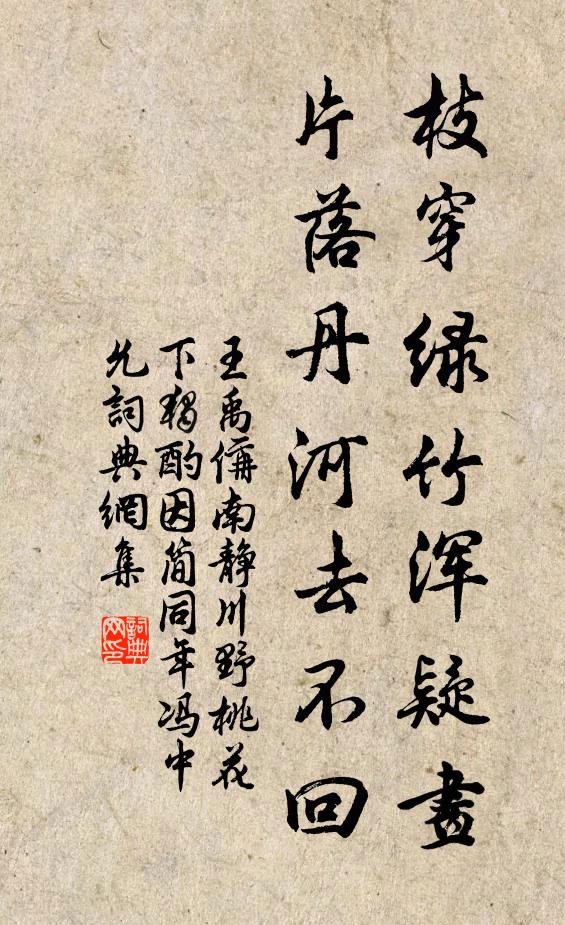 枝穿緑竹浑疑畫
片落丹河去不回
王禹偁南静川野桃花
下獨酌因简同年冯中
允詞典網集
詞典网印